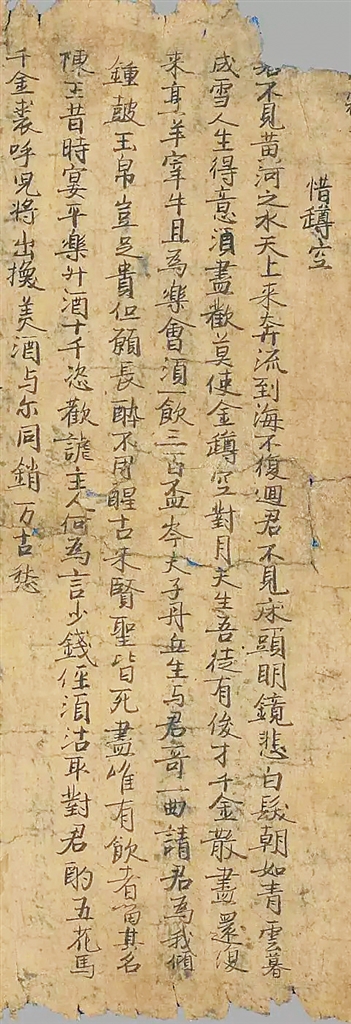 惜罇空
君不見黄河之水天上来奔流到海不復迴君不見床頭明鏡悲白髮朝如青雲暮
成雪人生得意須盡歡莫使金罇空對月天生吾徒有俊才千金散盡還復
来烹羊宰牛且為樂會須一飲三百盃岑夫子丹丘生与君哥一曲請君為我傾
鍾皷玉帛豈足貴但願長醉不用醒古来賢聖皆死盡唯有飲者留其名
陳王昔時宴平樂斗酒十千恣歡謔主人何為言少錢徑須沽取對君酌五花馬
千金裘呼兒將出換美酒与尔同銷万古愁